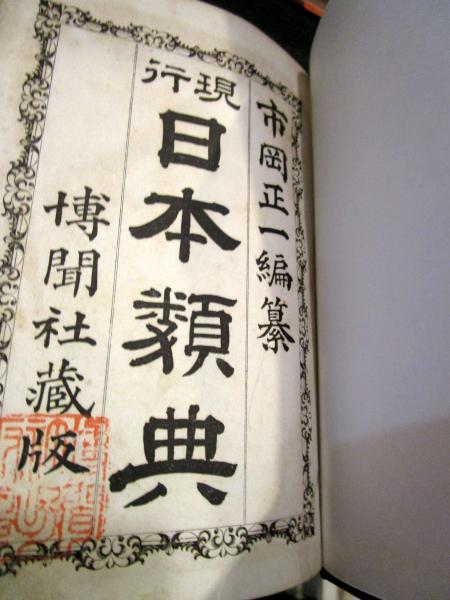 市岡正一編纂
現行
日本類典
博聞社蔵版